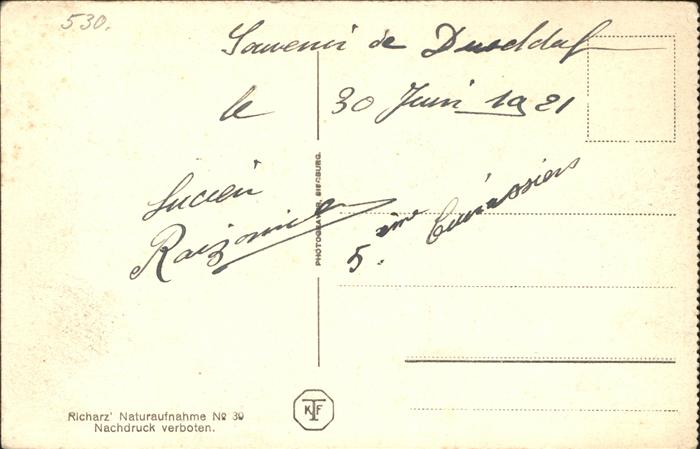 530.
Souvenir de Dusseldof
le 30 Juin 1921
Lucien
5. ème Cuirassiers
PHOTOGRAPH. SIEGBURG.
Richarz' Naturaufnahme № 30
Nachdruck verboten.
KTF